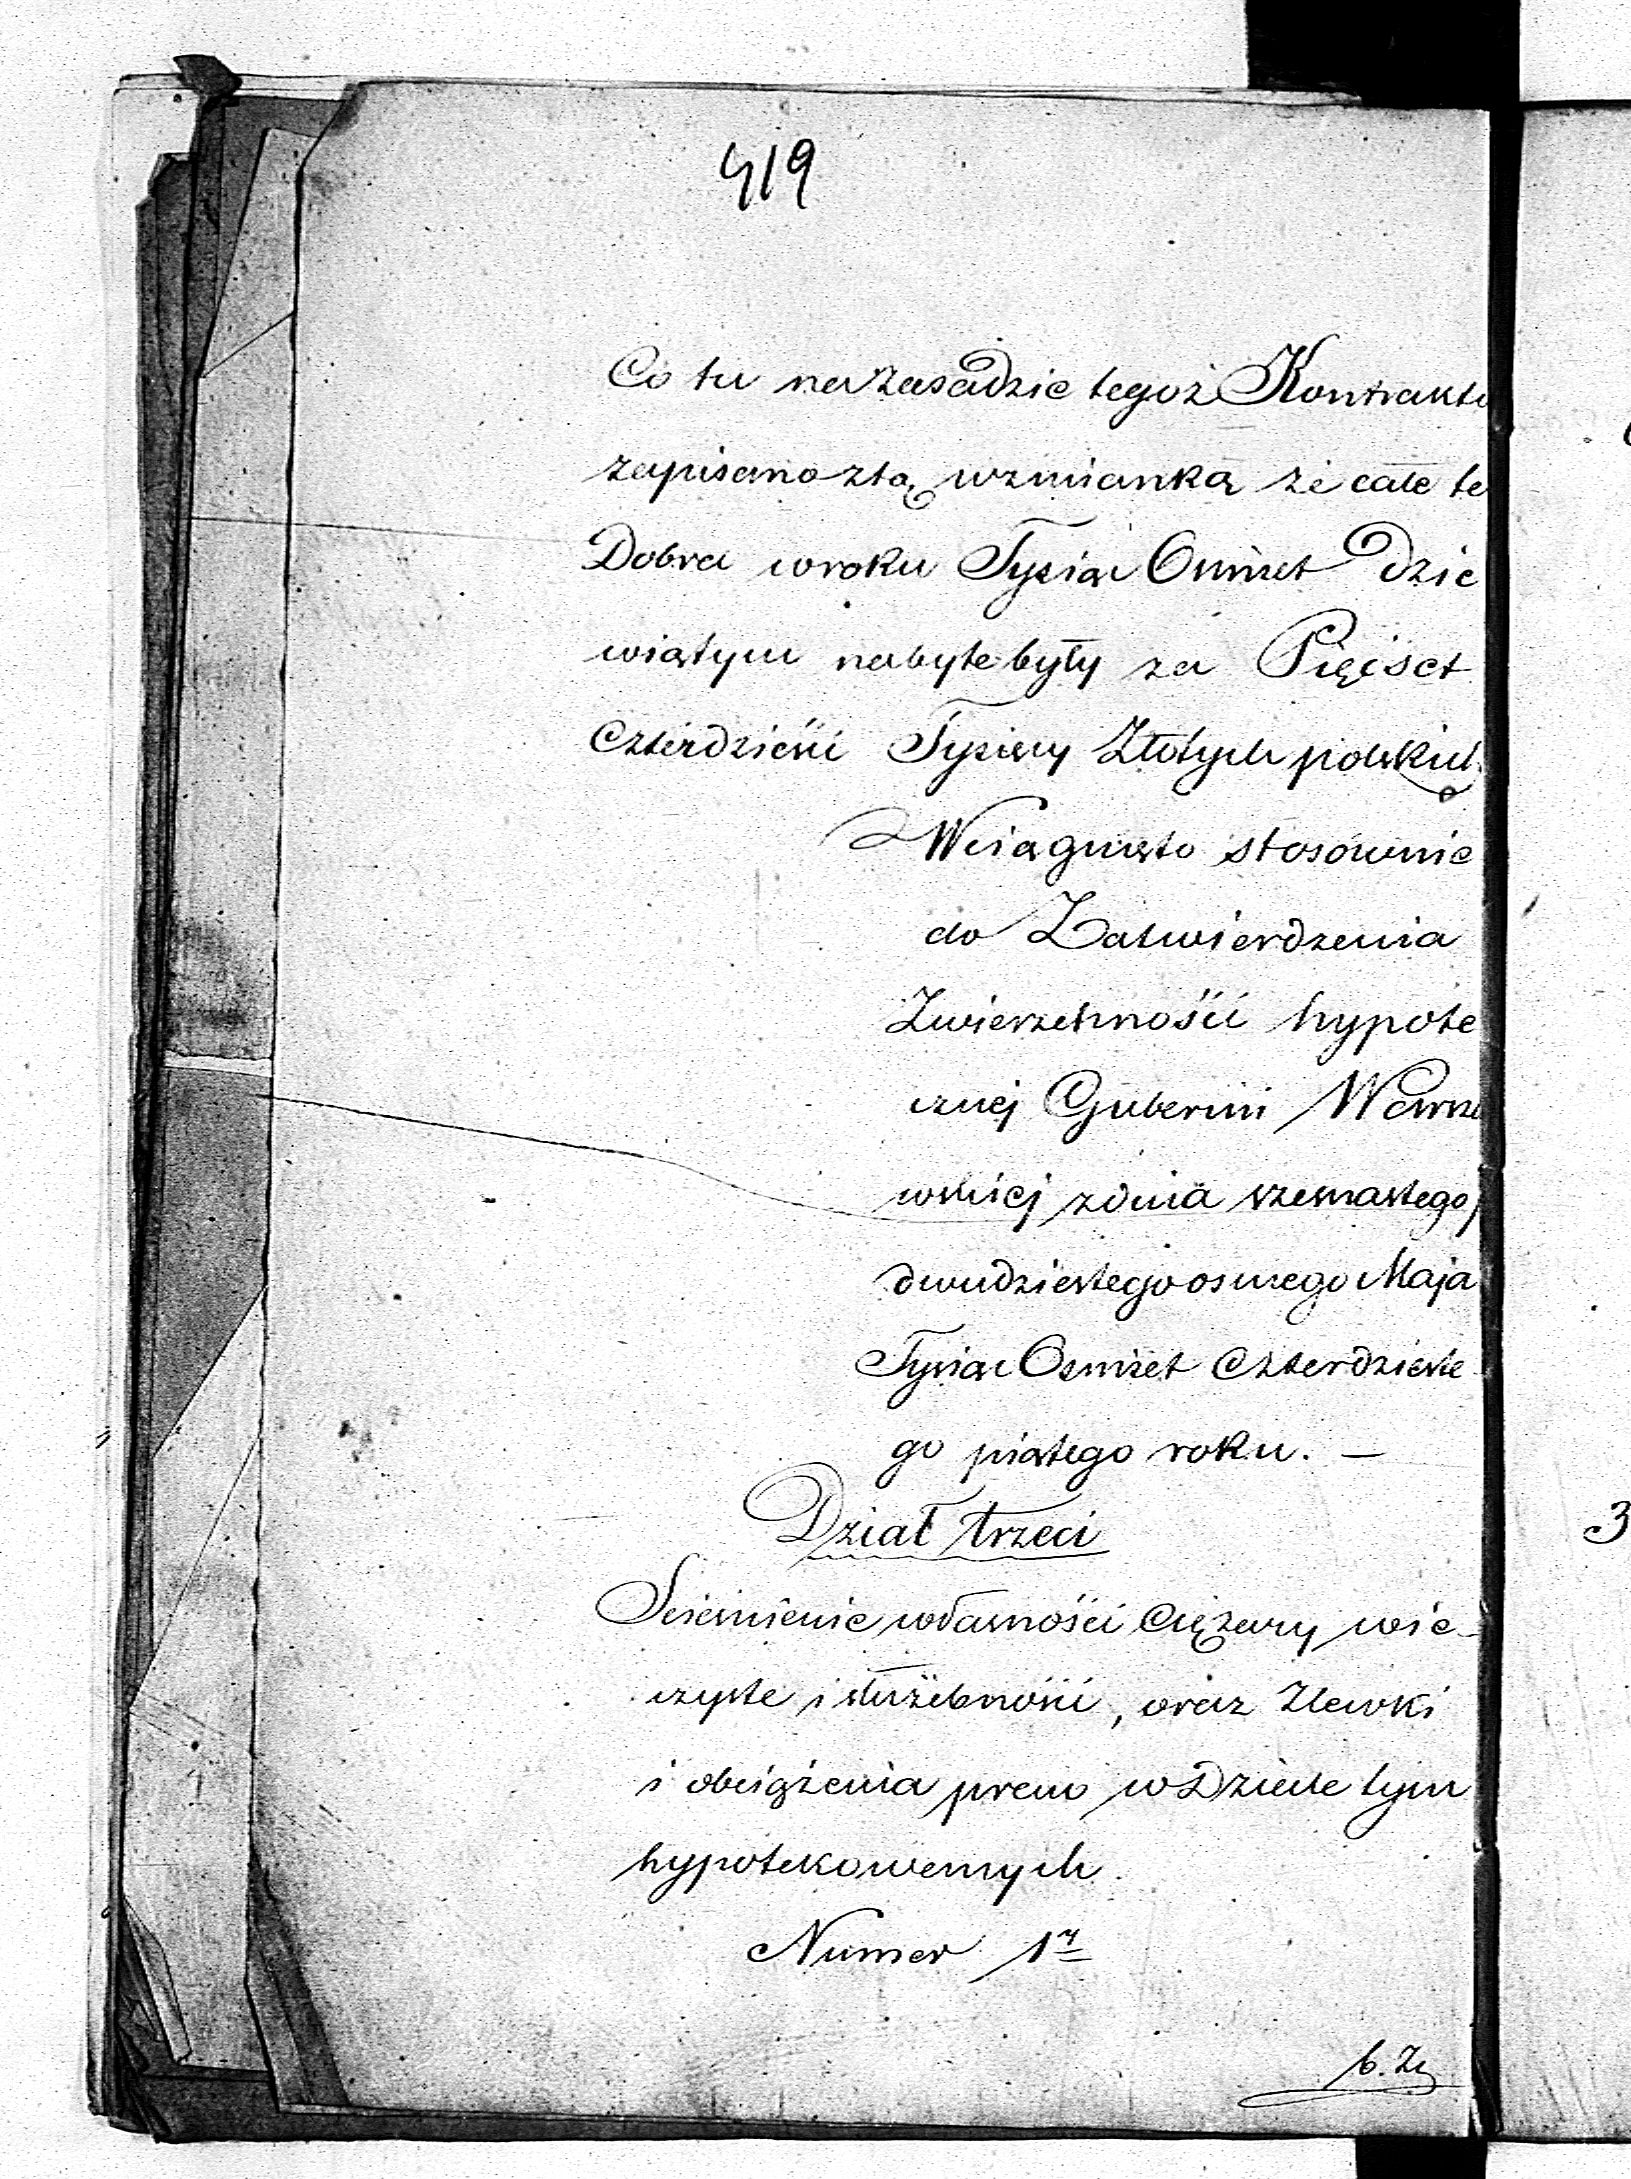 419
Co tu na zasadzie tegoż Kontraktu
zapisano z tą wzmianką że całe te
Dobra w roku Tysiąc Ośmset dzie
wiątym nabyte były za Pięćset
Czterdzieści Tysięcy Złotych polskich
Wciągnięto stosownie
do Zatwierdzenia
Zwierzchności hypote
cznej Gubernii Warsza
wskiej z dnia szesnastego/
dwudziestego osmego Maja
Tysiąc Ośmset Czterdzieste
go piątego roku. —
Dział trzeci
Ścieśnienie własności Ciężary wie-
czyste i służebności, oraz Zlewki
i obciążenia praw w Dziale tym
hypotekowanych.
Numer 1y
b. Zy
3